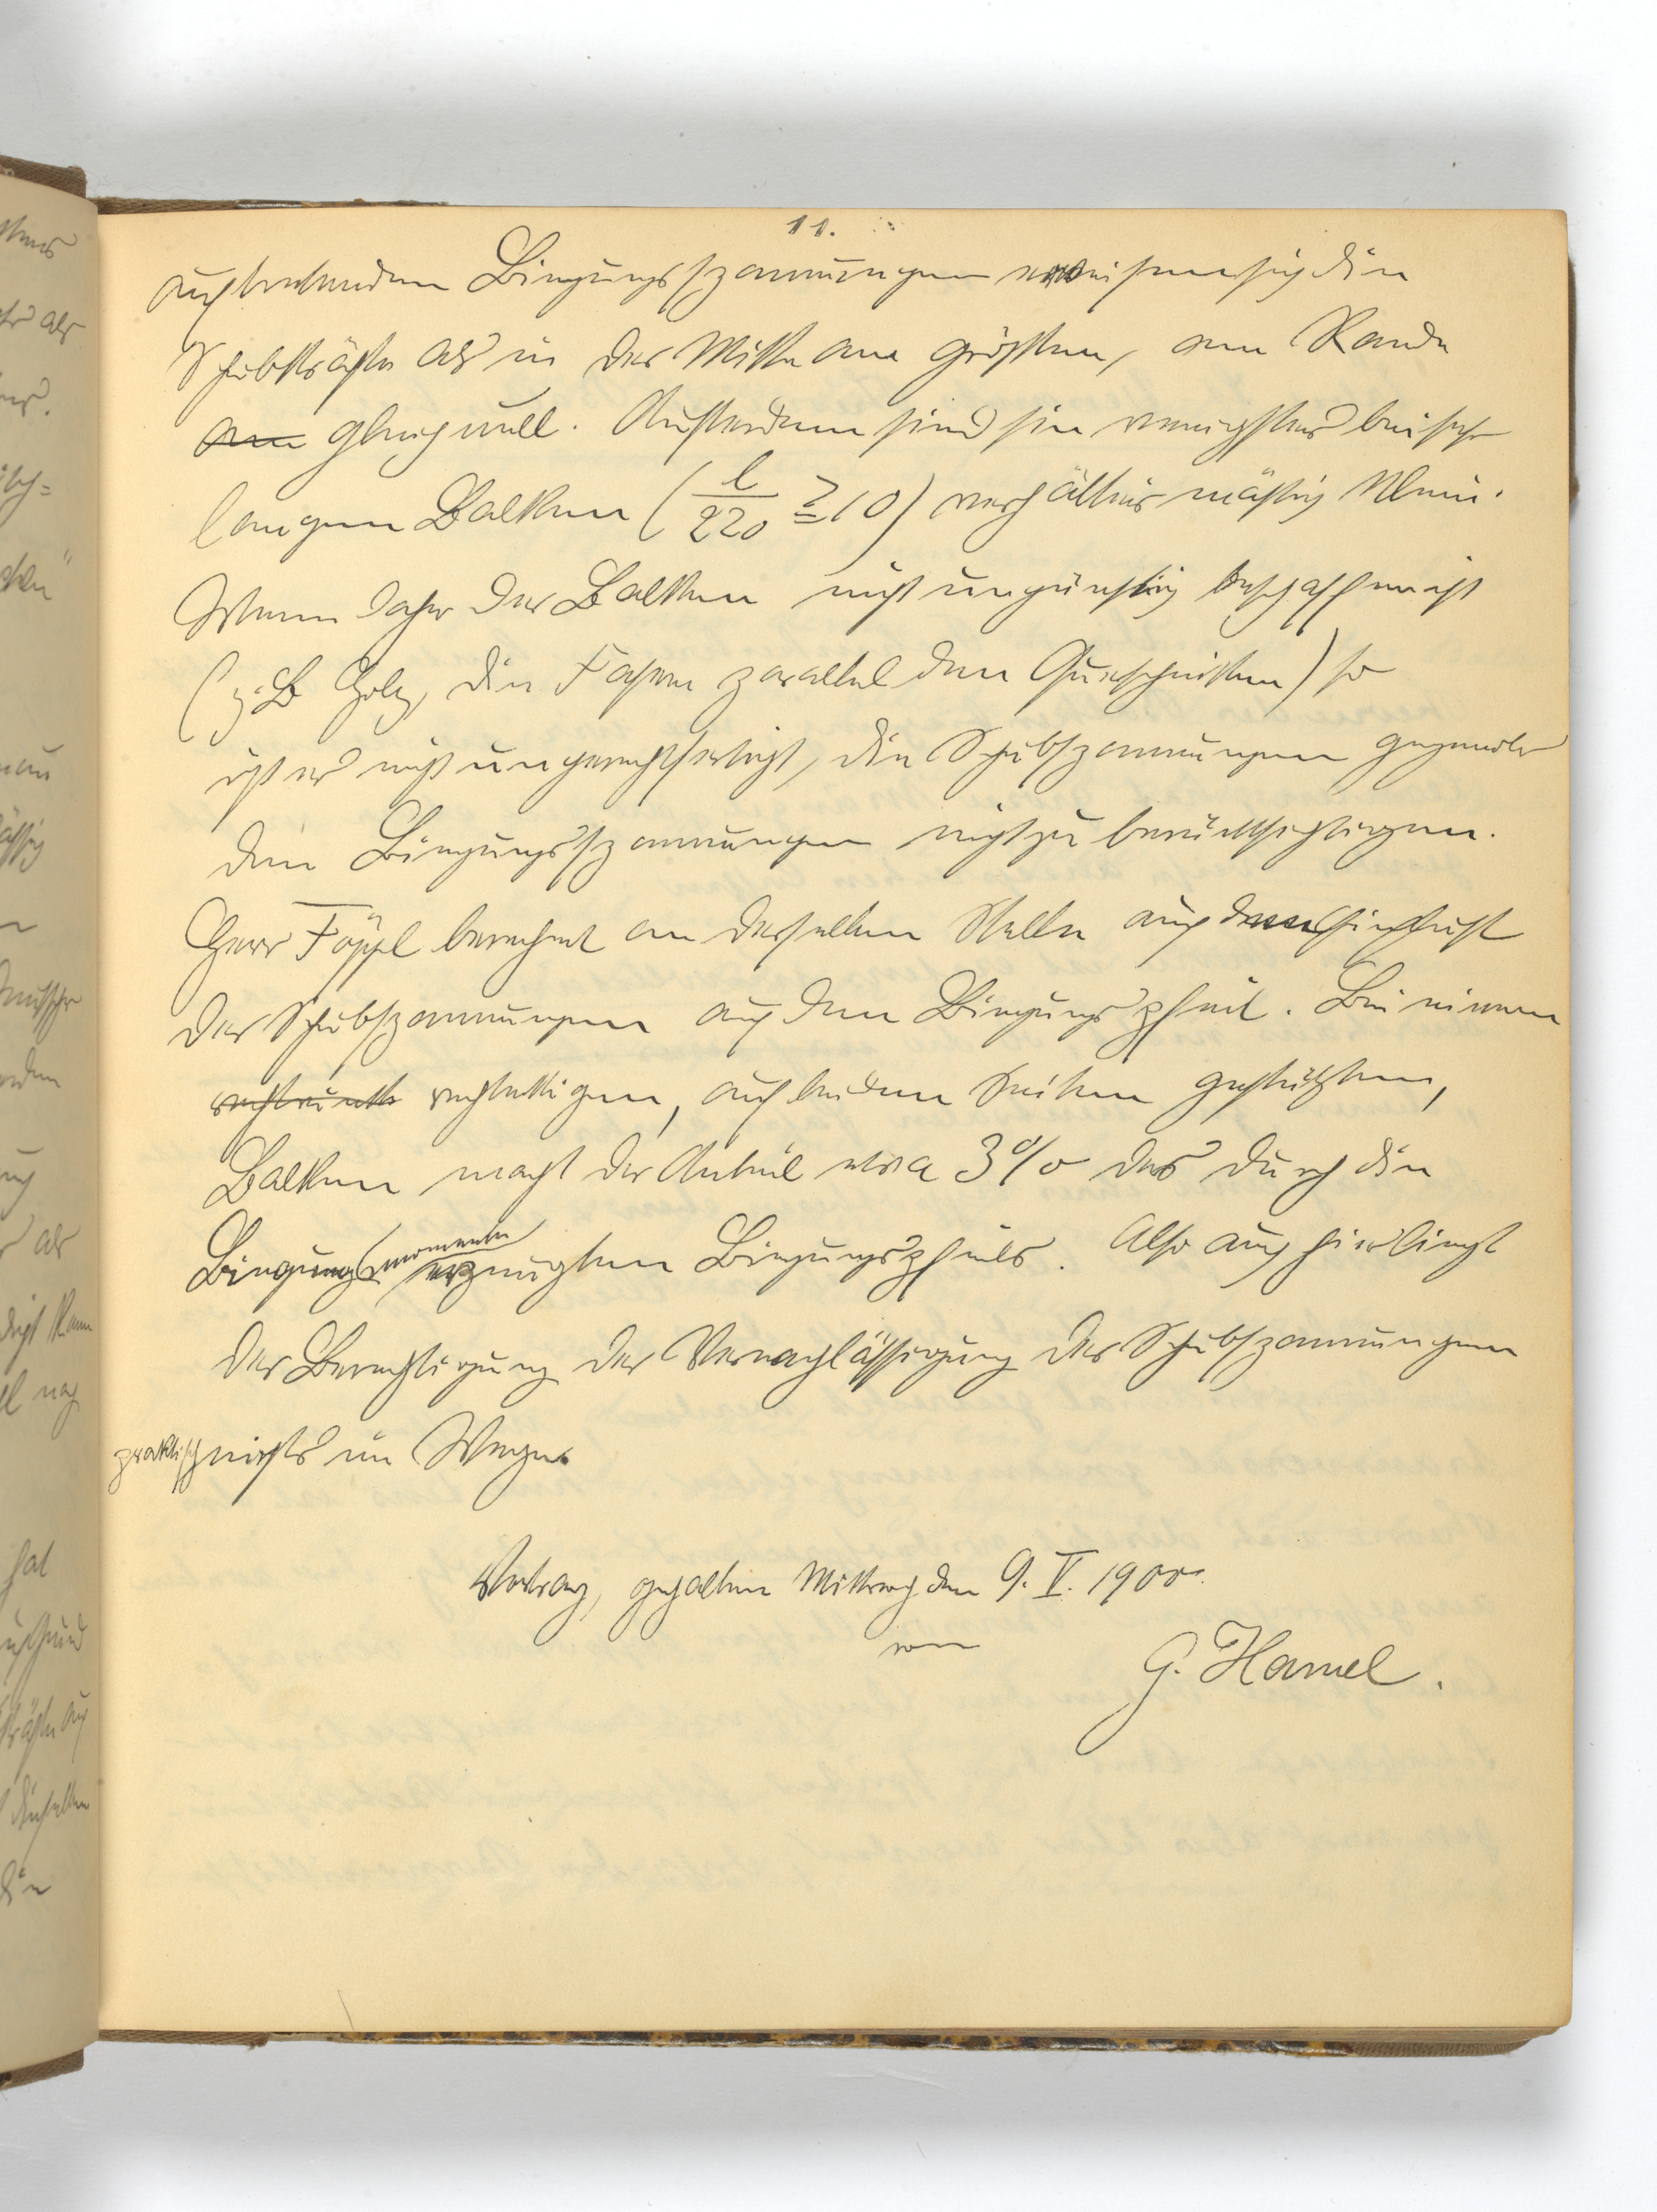 11.
auftretenden Biegungsspannungen erweisen sich die
Schubkräfte als in der Mitte am grössten, am Rande
am gleich null. Außerdem sind sie wenigstens bei sehr
langen Balken (l/2z0 ≧ 10) verhältnismäßig klein.
Wenn daher der Balken nicht ungünstig beschaffen ist
(z. B Holz, die Fasern parallel den Querschnitten) so
ist es nicht ungerechtfertigt, die Schubspannungen gegenüber
den Biegungsspannungen nicht zu berücksichtigen.
Herr Föppl berechnet an derselben Stelle auch den Einfluß
der Schubspannungen auf den Biegungspfeil. Bei einem
rechteckigen, auf beiden Seiten gestützten,
Balken macht der Anteil etwa 3% des durch die
Biegungsmomente erzeugten Biegungspfeils. Also auch hier liegt
der Berechtigung der Vernachlässigung der Schubspannungen
praktisch nichts im Wege.
Vortrag, gehalten Mittwoch den 9. V. 1900.
von
G. Hamel.